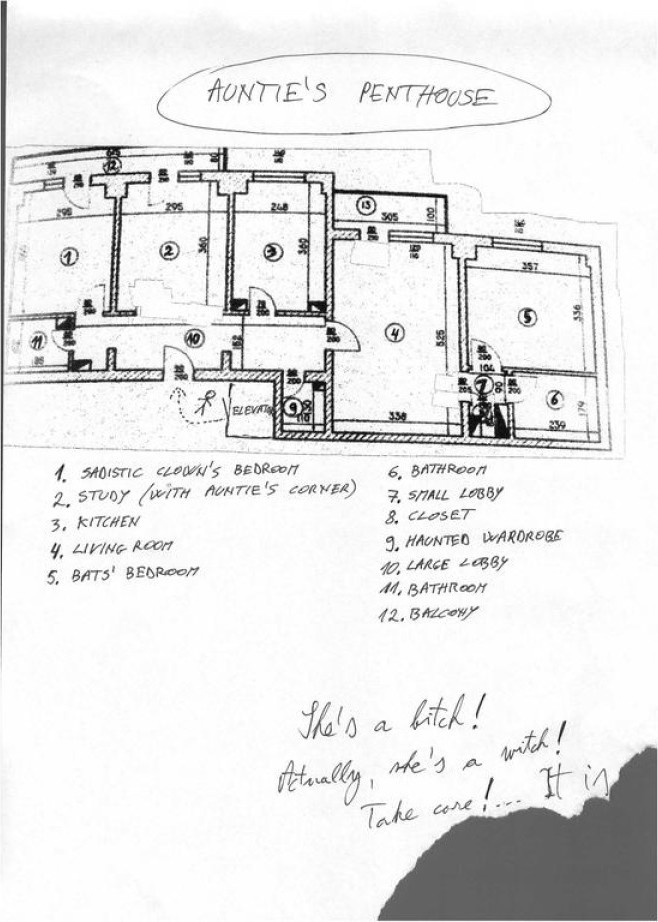 AUNTIE'S PENTHOUSE
12
13
295
295
248
305
100
1
2
3
360
360
4
357
5
336
525
11
10
ELEVATOR
9
110
338
104
7
90
6
239
179
200
200
200
200
1. SADISTIC CLOWN'S BEDROOM
2. STUDY (WITH AUNTIE'S CORNER)
3. KITCHEN
4. LIVING ROOM
5. BATS' BEDROOM
6. BATHROOM
7. SMALL LOBBY
8. CLOSET
9. HAUNTED WARDROBE
10. LARGE LOBBY
11. BATHROOM
12. BALCONY
She's a bitch!
Actually, she's a witch!
Take care!... It is